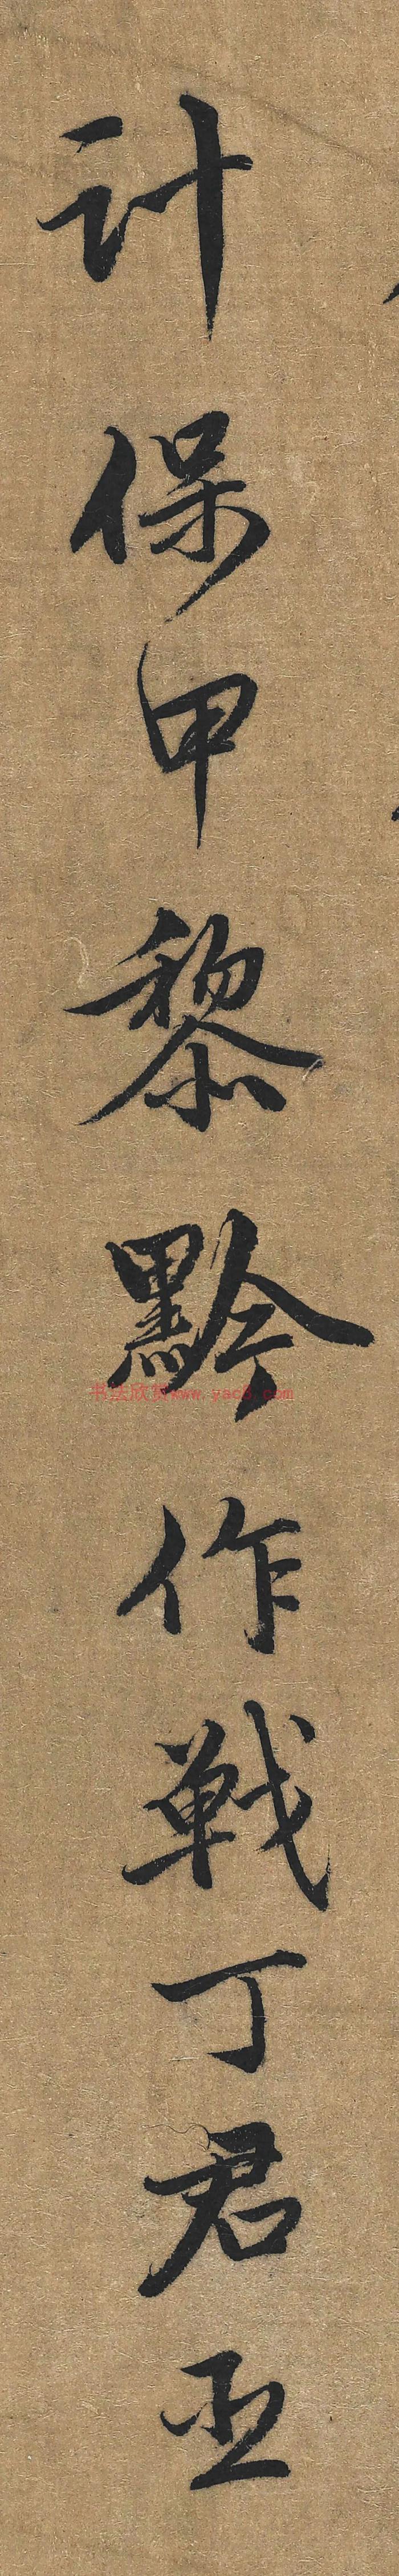 計保甲黎黔作戰丁君丞
书法欣赏www.yac8.com